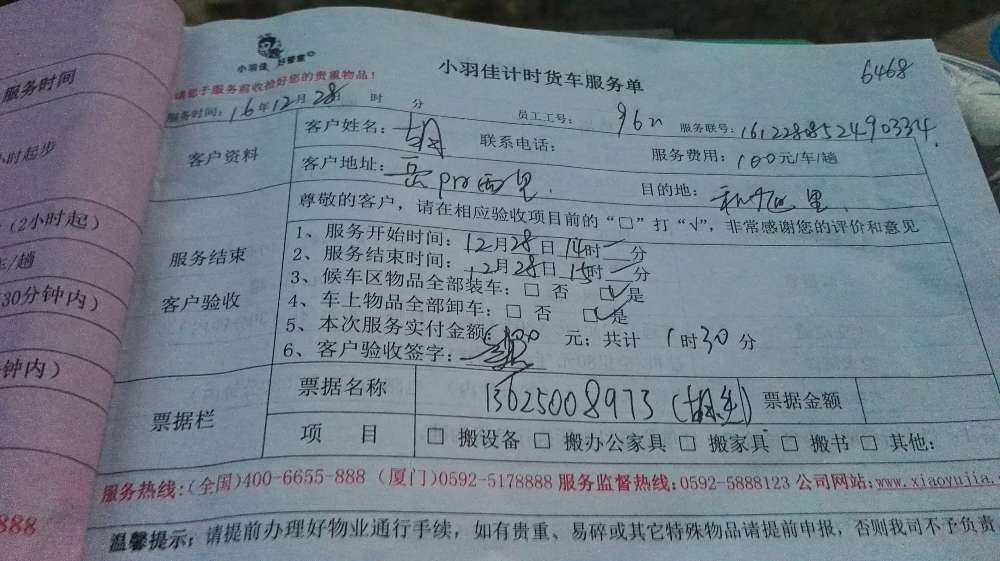 小羽佳 好管家
小羽佳计时货车服务单
6468
请您于服务前收捡好您的贵重物品!
服务时间
服务时间: 16年12月28日 时 分
员工工号: 服务联号: 161228852490334
小时起步
客户资料
客户姓名: 胡 联系电话: 服务费用: 100元/车/趟
客户地址: 西里 目的地: 里
尊敬的客户,请在相应验收项目前的“□”打“√”,非常感谢您的评价和意见
(2小时起)
车/趟
30分钟内)
钟内)
服务结束
客户验收
1、服务开始时间: 12月28日14时 分
2、服务结束时间: 12月28日15时 分
3、候车区物品全部装车: □ 否 ☑ 是
4、车上物品全部卸车: □ 否 ☑ 是
5、本次服务实付金额: 100 元; 共计 1时30分
6、客户验收签字:
票据栏
票据名称 13625008973 (胡先生) 票据金额
项 目 □ 搬设备 □ 搬办公家具 □ 搬家具 □ 搬书 □ 其他:
服务热线:(全国)400-6655-888 (厦门)0592-5178888 服务监督热线:0592-5888123 公司网站:www.xiaoyujia.
888
温馨提示: 请提前办理好物业通行手续,如有贵重、易碎或其它特殊物品请提前申报,否则我司不予负责